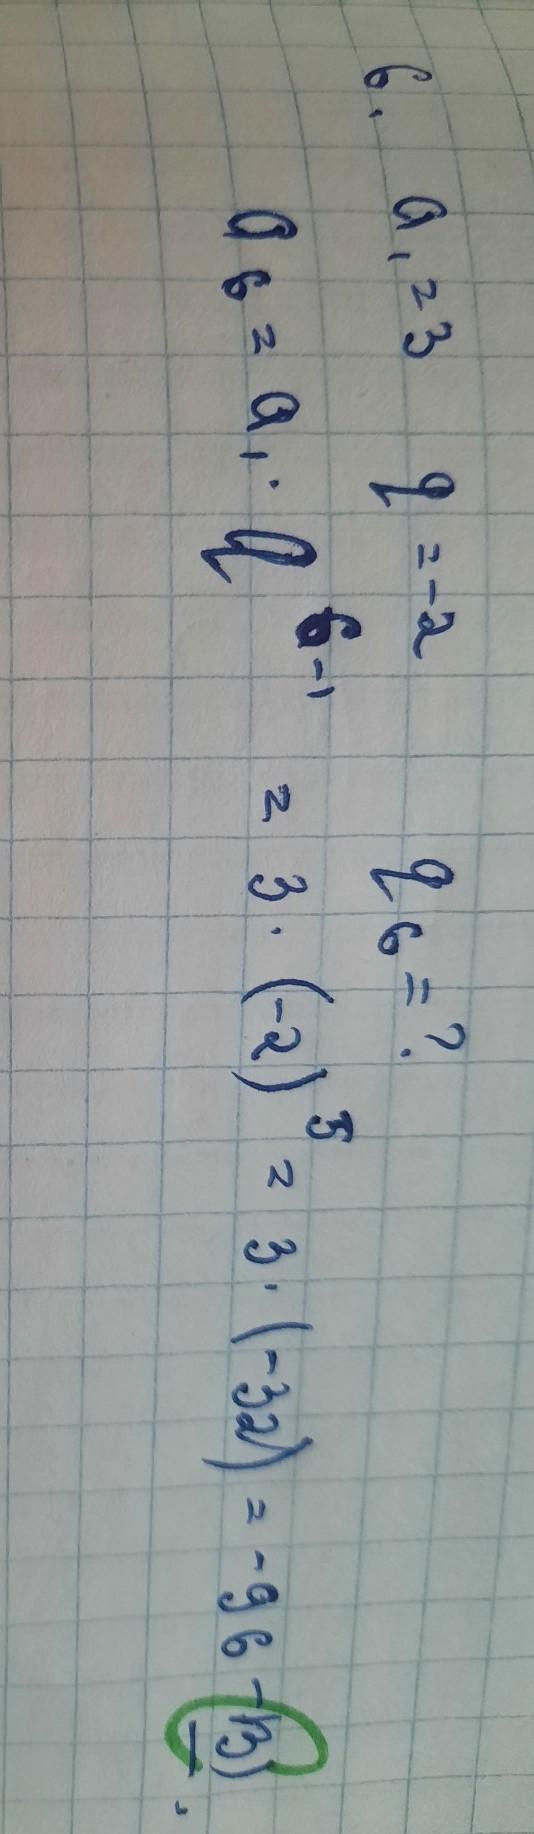 6. a₁ = 3 q = -2 q₆ = ?
a₆ = a₁ · q⁶⁻¹ = 3 · (-2)⁵ = 3 · (-32) = -96 - B).